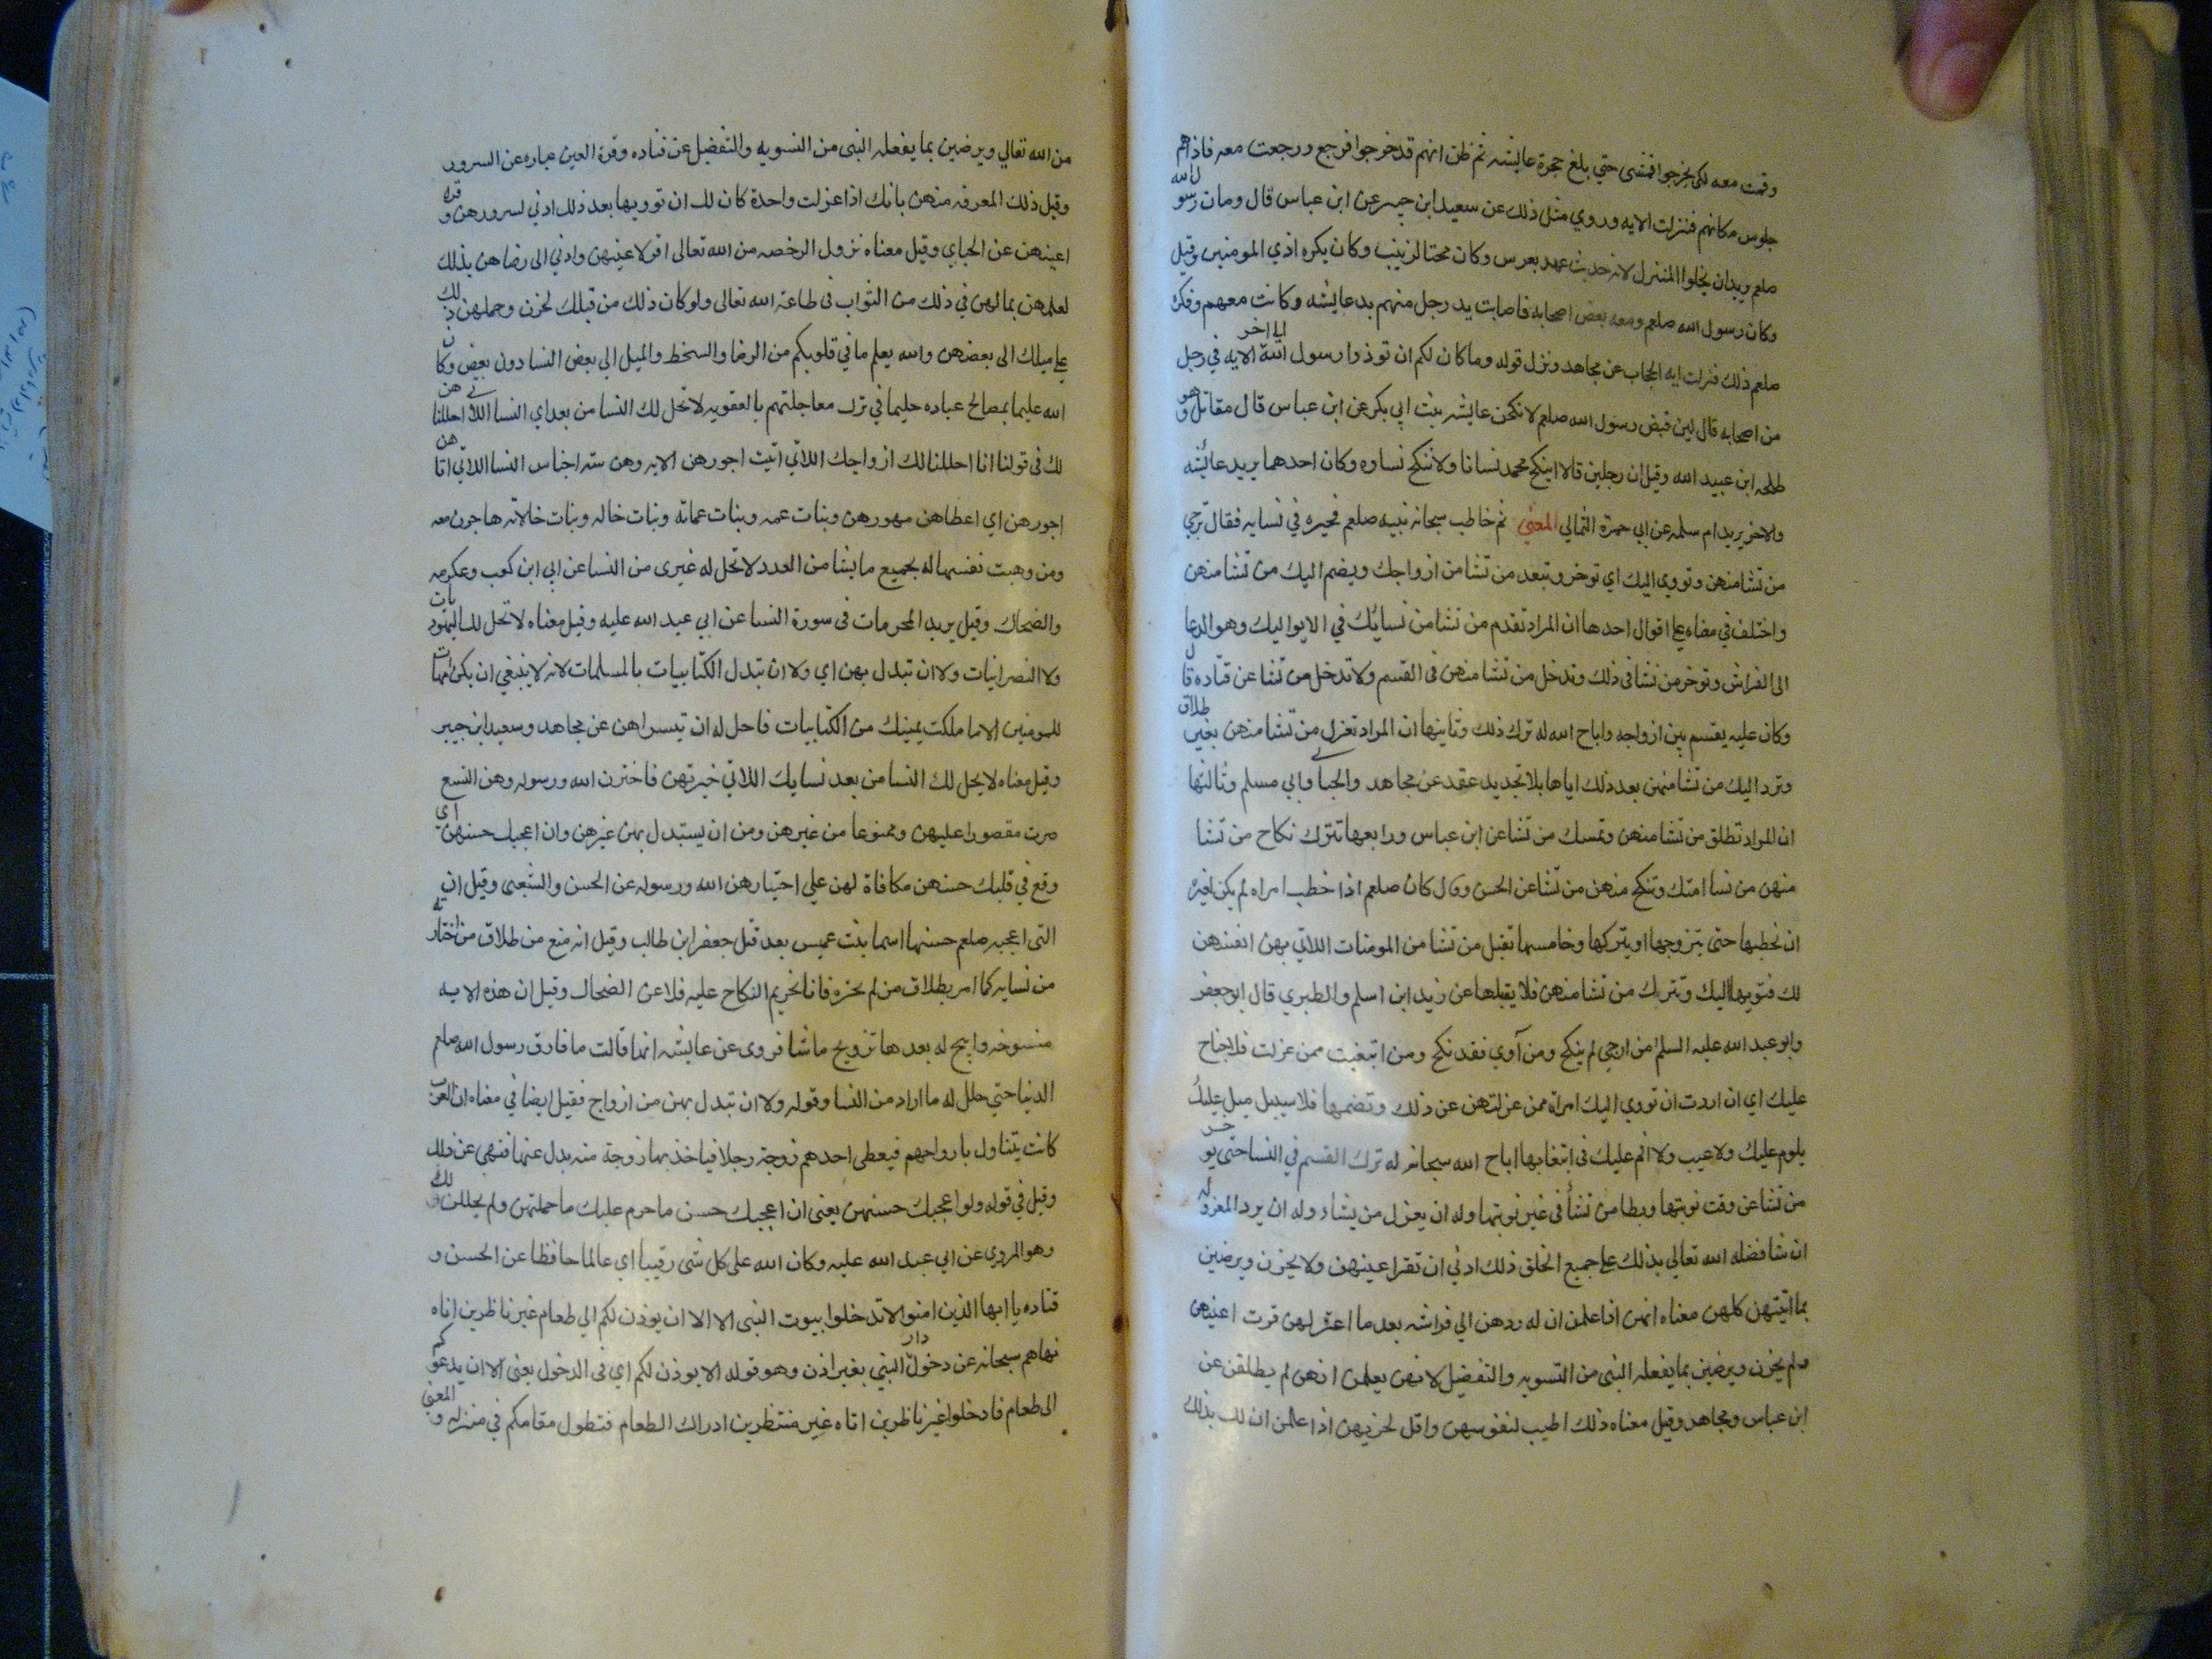 وقمت معه لكي يخرجوا فمشى حتي بلغ حجرة عايشه ثم ظن انهم قد خرجوا فرجع ورجعت معه فاذا هم
جلوس مكانهم فنزلت الايه وروي مثل ذلك عن سعيد ابن جبير عن ابن عباس قال ومات رسول الله
صلعم يريد ان يخلوا المنزل لانه حديث عهد بعرس وكان محتا لزينب وكان يكره اذي المومنين وقيل
وكان رسول الله صلعم ومعه بعض اصحابه فاصابت يد رجل منهم يد عايشه وكانت معهم فكره
صلعم ذلك فنزلت ايه الحجاب عن مجاهد ونزل قوله وما كان لكم ان توذوا رسول الله الي اخر الايه في رجل
من اصحابه قال لين قبض رسول الله صلعم لانكحن عايشه بنت ابي بكر عن ابن عباس قال مقاتل وهو
طلحه ابن عبيد الله وقيل ان رجلين قالا اينكح محمد نسانا ولا ننكح نساوه وكان احدهما يريد عائشه
والاخر يريد ام سلمه عن ابي حمزة الثمالي المعنى ثم خاطب سبحانه نبيه صلعم فخيره في نسايه فقال ترجي
من تشا منهن وتووي اليك اي توخر وتبعد من تشا من ازواجك ويضم اليك من تشا منهن
واختلف في معناه علي اقوال احدها ان المراد تقدم من تشا من نسايك في الايوا اليك وهو الدعا
الى الفراش وتوخر من تشا في ذلك وتدخل من تشا منهن في القسم ولا تدخل من تشا عن قتاده قال
وكان عليه يقسم بين ازواجه واباح الله له ترك ذلك وثانيها ان المراد تعزل من تشا منهن بغير طلاق
وترد اليك من تشا منهن بعد ذلك اياها بلا تجديد عقد عن مجاهد والجباي وابي مسلم وثالثها
ان المراد تطلق من تشا منهن وتمسك من تشا عن ابن عباس ورابعها تترك نكاح من تشا
منهن من نسا امتك وتنكح منهن من تشا عن الحسن وقال كان صلعم اذا خطب امراه لم يكن لغيره
ان يخطبها حتى يتزوجها او يتركها وخامسها تقبل من تشا من المومنات اللاتي يهبن انفسهن
لك فتويها اليك وتترك من تشا منهن فلا يقبلها عن زيد ابن اسلم والطبري قال ابو جعفر
وابو عبد الله عليه السلم من ارجي لم ينكح ومن آوي فقد نكح ومن ابتغيت ممن عزلت فلا جناح
عليك اي ان اردت ان تووي اليك امراة ممن عزلتهن عن ذلك وتضمها فلا سبيل عليك
يلوم عليك ولا عيب ولا اثم عليك في ابتغايها اباح الله سبحانه له ترك القسم في النسا حتى يوخر
من تشا عن وقت نوبتها ويطا من تشا في غير نوبتها وله ان يعزل من يشاء وله ان يرد المعزوله
ان شا فضله الله تعالي بذلك علي جميع الخلق ذلك ادني ان تقر اعينهن ولا يحزن ويرضين
بما اتيتهن كلهن معناه انهن اذا علمن ان له ردهن الي فراشه بعد ما اعتزلهن قرت اعينهن
ولم يحزن ويرضين بما يفعله النبي من التسويه والتفضيل لانهن يعلمن انهن لم يطلقن عن
ابن عباس ومجاهد وقيل معناه ذلك اطيب لنفوسهن واقل لحزنهن اذا علمن ان لك بذلك
من الله تعالي ويرضين بما يفعله النبي من التسويه والتفضيل عن قتاده وقرة العين عباره عن السرور
وقيل ذلك المعرفه منهن بانك اذا عزلت واحدة كان لك ان توويها بعد ذلك ادني لسرورهن وقره
اعينهن عن الجباي وقيل معناه نزول الرخصه من الله تعالى اقر لاعينهن وادني الى رضاهن بذلك
لعلمهن بما لهن في ذلك من الثواب في طاعة الله تعالى ولو كان ذلك من قبلك لحزن وحملهن ذلك
علي ميلك الى بعضهن والله يعلم ما في قلوبكم من الرضا والسخط والميل الي بعض النسا دون بعض وكان
الله عليما بمصالح عباده حليما في ترك معاجلتهم بالعقوبه لا تحل لك النسا من بعد اي النسا اللاتي احللناهن
لك في قولنا انا احللنا لك ازواجك اللاتي اتيت اجورهن الايه وهن سته اجناس النسا اللاتي اتاهن
اجورهن اي اعطاهن مهورهن وبنات عمه وبنات عماته وبنات خاله وبنات خالاته هاجرن معه
ومن وهبت نفسها له بجميع ما يشا من العدد لا تحل له غيرى من النسا عن ابي ابن كعب وعكرمه
والضحاك وقيل يريد المحرمات في سورة النسا عن ابي عبد الله عليه وقيل معناه لا تحل لك اليهوديات
ولا النصرانيات ولا ان تبدل بهن اي ولا ان تبدل الكتابيات بالمسلمات لانه لا ينبغي ان يكن امهات
للمومنين الا ما ملكت يمينك من الكتابيات فاحل له ان يتسراهن عن مجاهد وسعيد ابن جبير
وقيل معناه لا يحل لك النسا من بعد نسايك اللاتي خيرتهن فاخترن الله ورسوله وهن التسع
صرت مقصورا عليهن وممنوعا من غيرهن ومن ان يستبدل بهن غيرهن وان اعجبك حسنهن اي
وقع في قلبك حسنهن مكافاة لهن علي اختيارهن الله ورسوله عن الحسن والشعبى وقيل ان
التى اعجبه صلعم حسنها اسما بنت عميس بعد قتل جعفر ابن طالب وقيل انه منع من طلاق من اختارته
من نسايه كما امر بطلاق من لم يختره فاما تحريم النكاح عليه فلا عن الضحاك وقيل ان هذه الايه
منسوخه وابيح له بعدها تزويج ما شا فروى عن عايشه انها قالت ما فارق رسول الله صلعم
الدنيا حتي حلل له ما اراد من النسا وقوله ولا ان تبدل بهن من ازواج فقيل ايضا في معناه ان العرب
كانت يتبادل بازواجهم فيعطى احدهم زوجته رجلا فياخذ بها زوجة منه بدل عنها فنهى عن ذلك
وقيل في قوله ولو اعجبك حسنهن يعنى ان اعجبك حسن ما حرم عليك من جملتهن ولم يحللن لك
وهو المروي عن ابي عبد الله عليه وكان الله على كل شى رقيبا اي عالما حافظا عن الحسن و
قتاده يا ايها الذين امنوا لا تدخلوا بيوت النبى الا ان يوذن لكم الي طعام غير ناظرين اناه
نهاهم سبحانه عن دخول دار النبي بغير اذن وهو قوله الا يوذن لكم اي في الدخول يعنى الا ان يدعوكم
الى طعام فادخلوا غير ناظرين اناه غير منتظرين ادراك الطعام فتطول مقامكم في منزله والمعنى